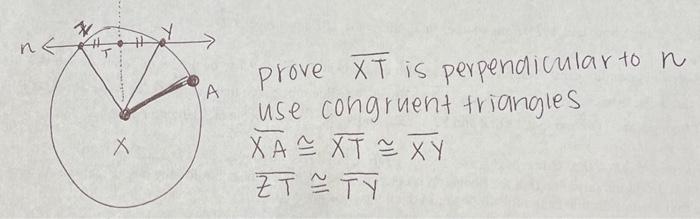 Z
Y
n
T
A
X
prove XT is perpendicular to n
use congruent triangles
XA ≅ XT ≅ XY
ZT ≅ TY